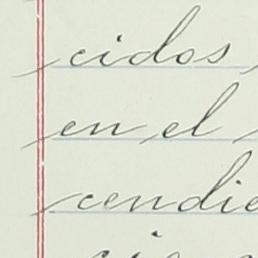 cidos
en el
cendie